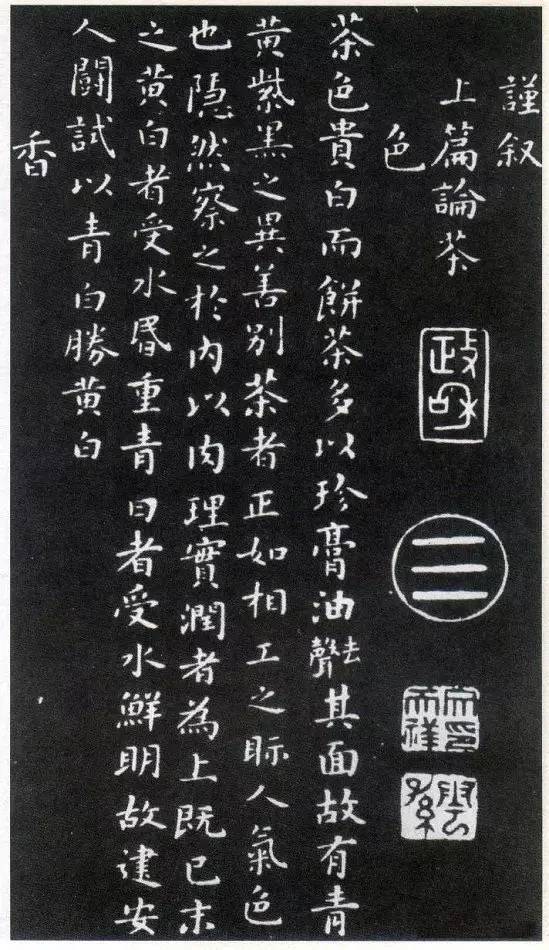 謹叙
上篇論茶
色
茶色貴白而餅茶多以珍膏油去聲其面故有青
黃紫黑之異善别茶者正如相工之眎人氣色
也隠然察之於内以肉理實潤者為上既已末
之黃白者受水昬重青日者受水鮮明故建安
人鬬試以青白勝黃白
香
政和